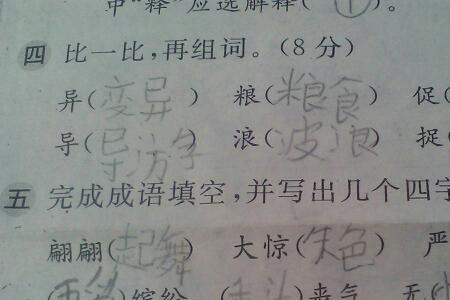 中"释"应选解释(①)。
四 比一比,再组词。(8分)
异(变异) 粮(粮食) 促(
导(导游) 浪(波浪) 捉(
五 完成成语填空,并写出几个四字
翩翩(起舞) 大惊(失色) 严
(五彩)缤纷 (垂头)丧气 无(